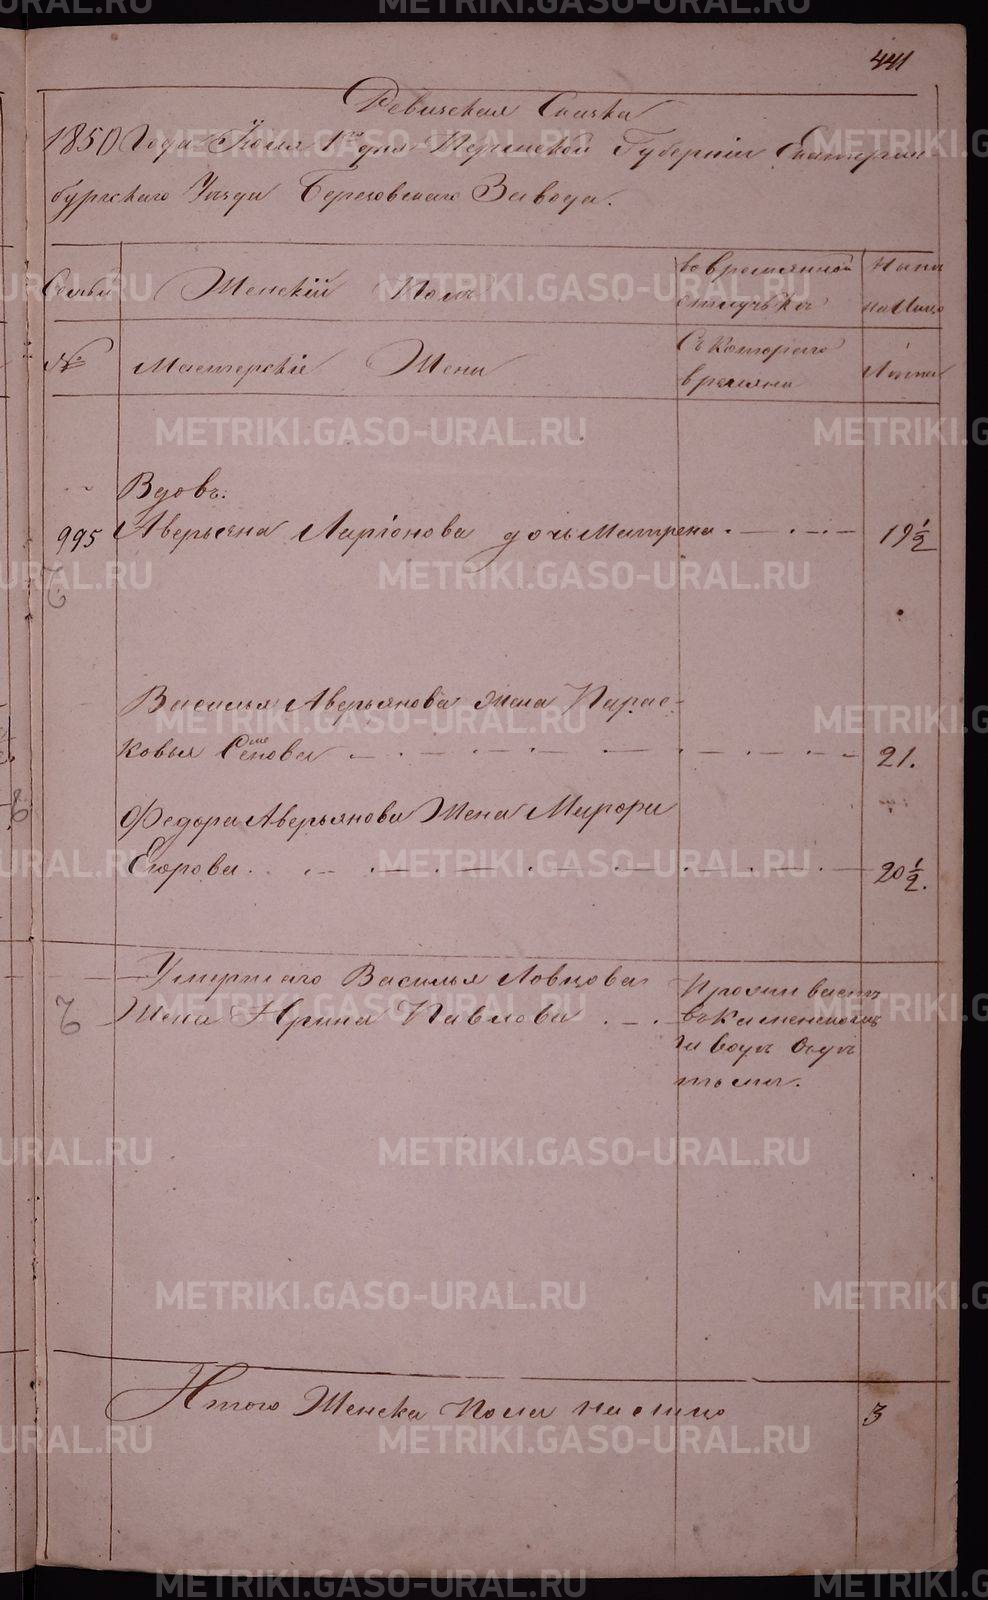 441
Ревизская Сказка
1850 Года Июля 1го дня Пермской Губернiи Екатерин
бургскаго Уезда Березовскаго Завода.
Семьи
Женскiй Полъ
во временной
отлучькъ
Ныне
на Лицо
№
Мастерскiе Жены
Съ котораго
времяни
Лета
Вдовъ:
995 Аверьяна Ларiонова дочь Матрена 19 1/2
Василья Аверьянова жена Парас-
ковья Семенова 21.
Федора Аверьянова Жена
Егорова 20 1/2.
Умершаго Василья Ловцова
Жена Ирина Павлова
Проживаетъ
въ Каменскомъ
заводе
Итого Женска пола на лицо 3
METRIKI.GASO-URAL.RU